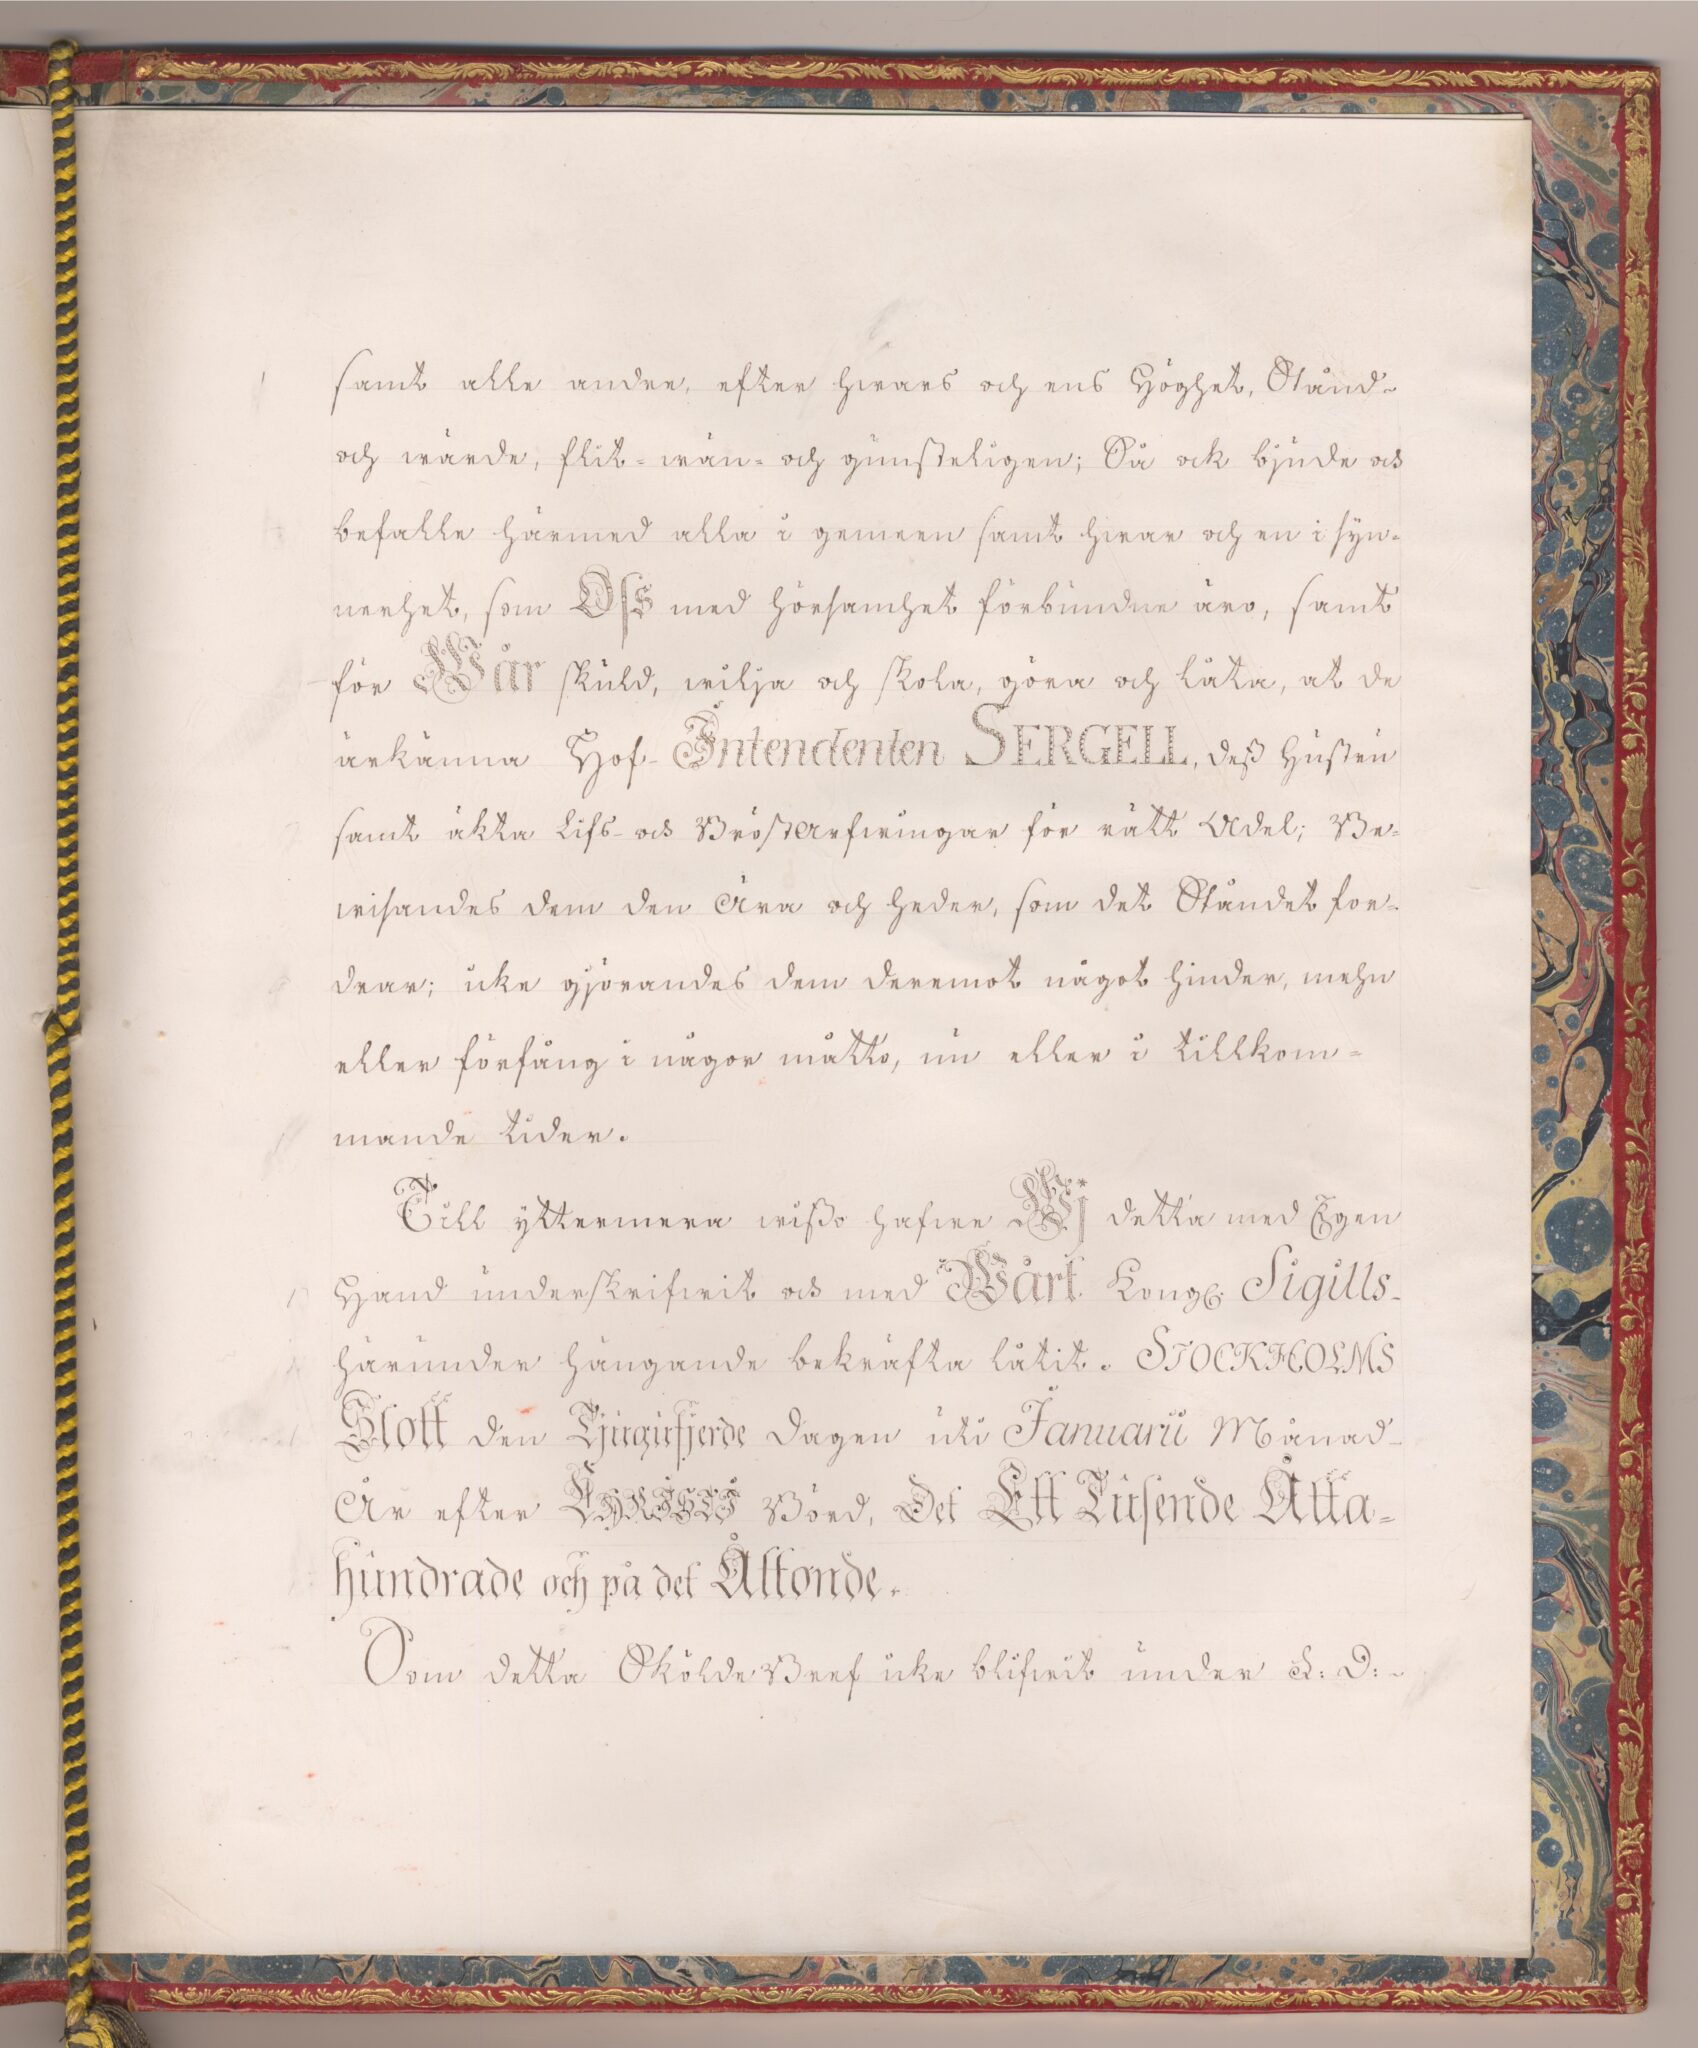 samt alle andre, efter hwars och ens Höghet, Stånd-
och wärde, flit-wän- och gunsteligen; Så ock bjude och
befalle härmed alla i gemeen samt hwar och en i syn-
nerhet, som Oss med hörsamhet förbundne äro, samt
för Wår skuld, wilja och skola, göra och låta, at de
ärkänna Hof-Intendenten SERGELL, deß Hustru
samt äkta Lifs- och BröstArfwingar för rätt Adel; Be-
wisandes dem den Ära och heder, som det Ståndet for-
drar; icke gjörandes dem deremot något hinder, mehn
eller förfång i någor måtto, nu eller i tillkom-
mande tider.
Till yttermera wißo hafwe Wj detta med Egen
Hand underskrifwit och med Wårt Kongl. Sigills-
härunder hängande bekräfta låtit. STOCKHOLMS
Slott den Tjugufjerde Dagen uti Januarii Månad-
År efter CHRISTI Börd, Det Ett Tusende Åtta-
hundrade och på det Åttonde.
Som detta SköldeBref icke blifwit under S: D:-